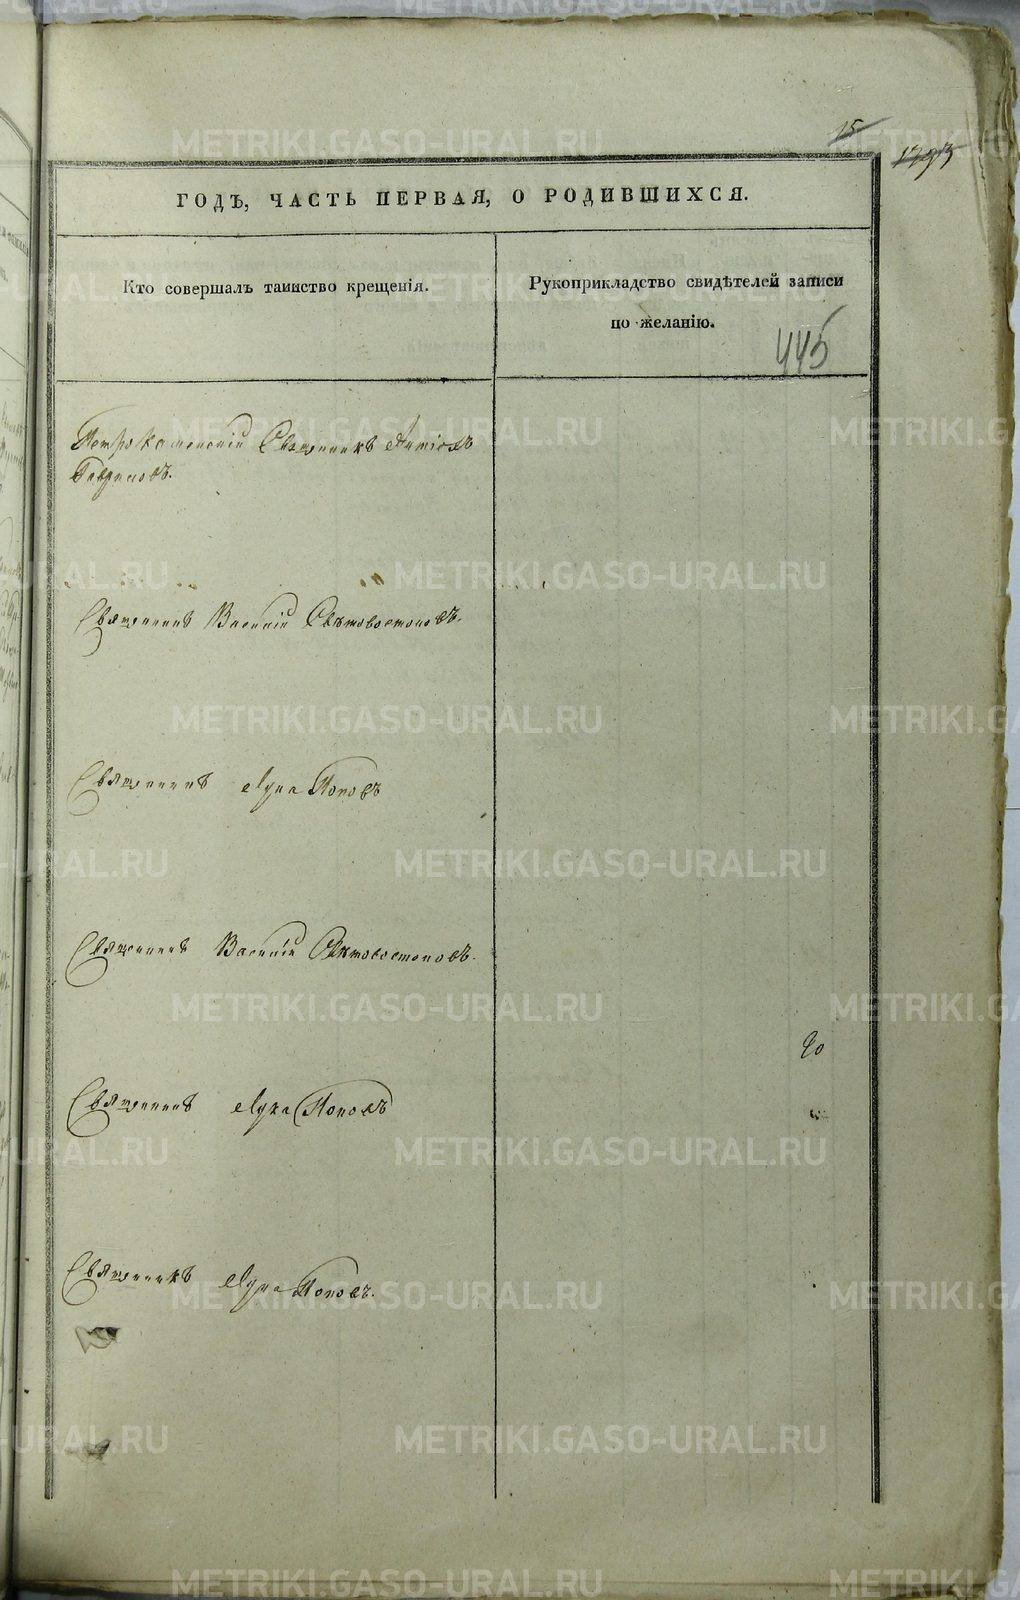 15
1293
ГОДЪ, ЧАСТЬ ПЕРВАЯ, О РОДИВШИХСЯ.
Кто совершалъ таинство крещенія.
Рукоприкладство свидѣтелей записи
по желанію.
445
Петрокаменскій Священникъ
Гавриловъ.
Священникъ Василій Свѣтовостоковъ.
Священникъ Лука Поповъ
Священникъ Василій Свѣтовостоковъ.
Священникъ Лука Поповъ
Священникъ Лука Поповъ.
METRIKI.GASO-URAL.RU